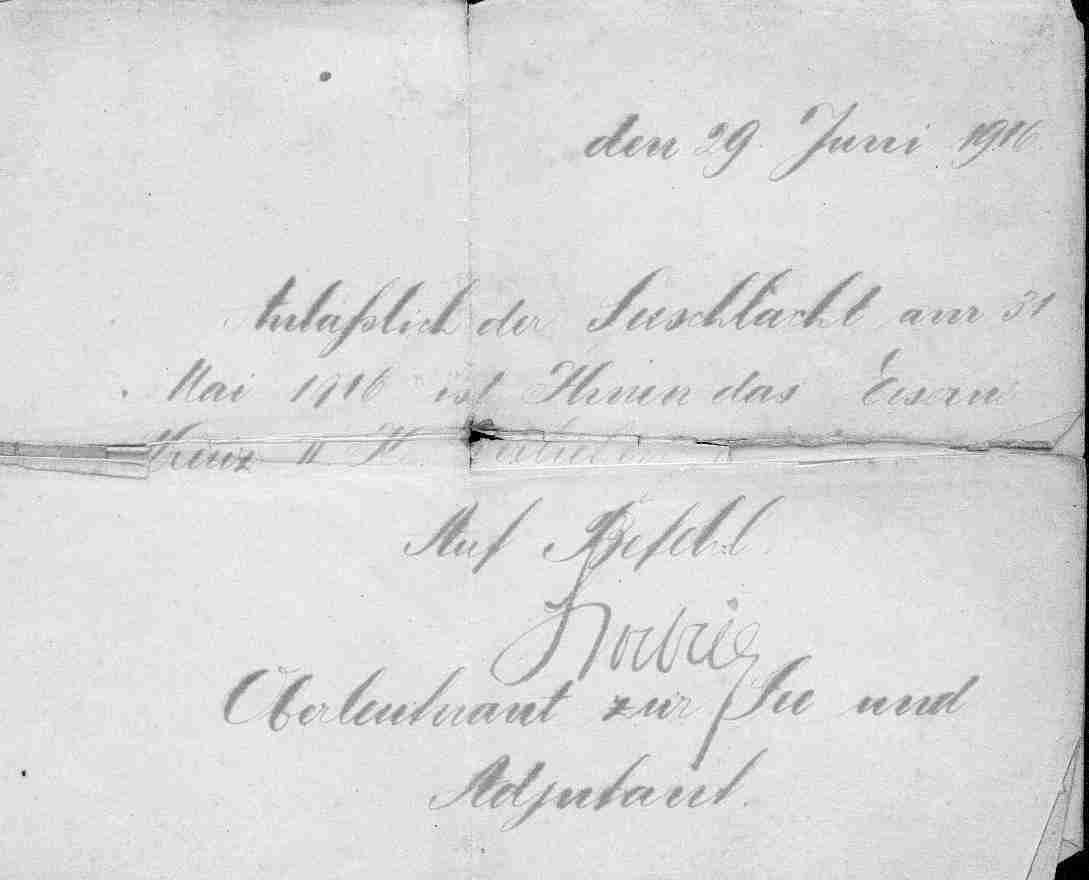 den 29. Juni 1916
Anläßlich der Seeschlacht am 31
Mai 1916 ist Ihnen das Eiserne
Kreuz II Kl. verliehen
Auf Befehl.
Oberleutnant zur See und
Adjutant.